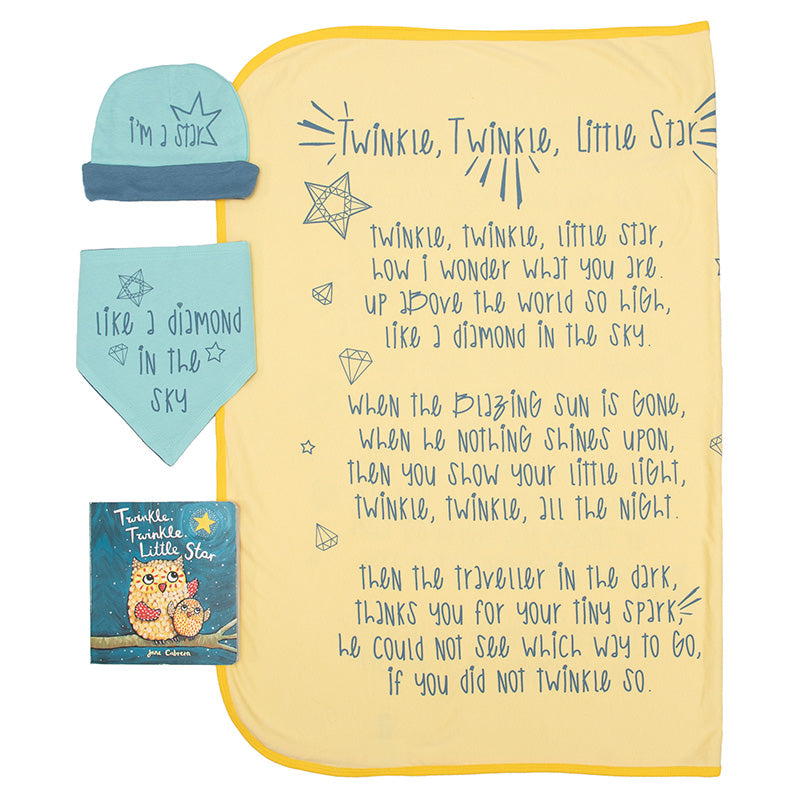 i'm a star
like a diamond
in the
sky
Twinkle,
Twinkle,
Little Star
Jane Cabrera
Twinkle, Twinkle, Little Star
twinkle, twinkle, little star,
how i wonder what you are.
up above the world so high,
like a diamond in the sky.
when the blazing sun is gone,
when he nothing shines upon,
then you show your little light,
twinkle, twinkle, all the night.
then the traveller in the dark,
thanks you for your tiny spark,
he could not see which way to go,
if you did not twinkle so.